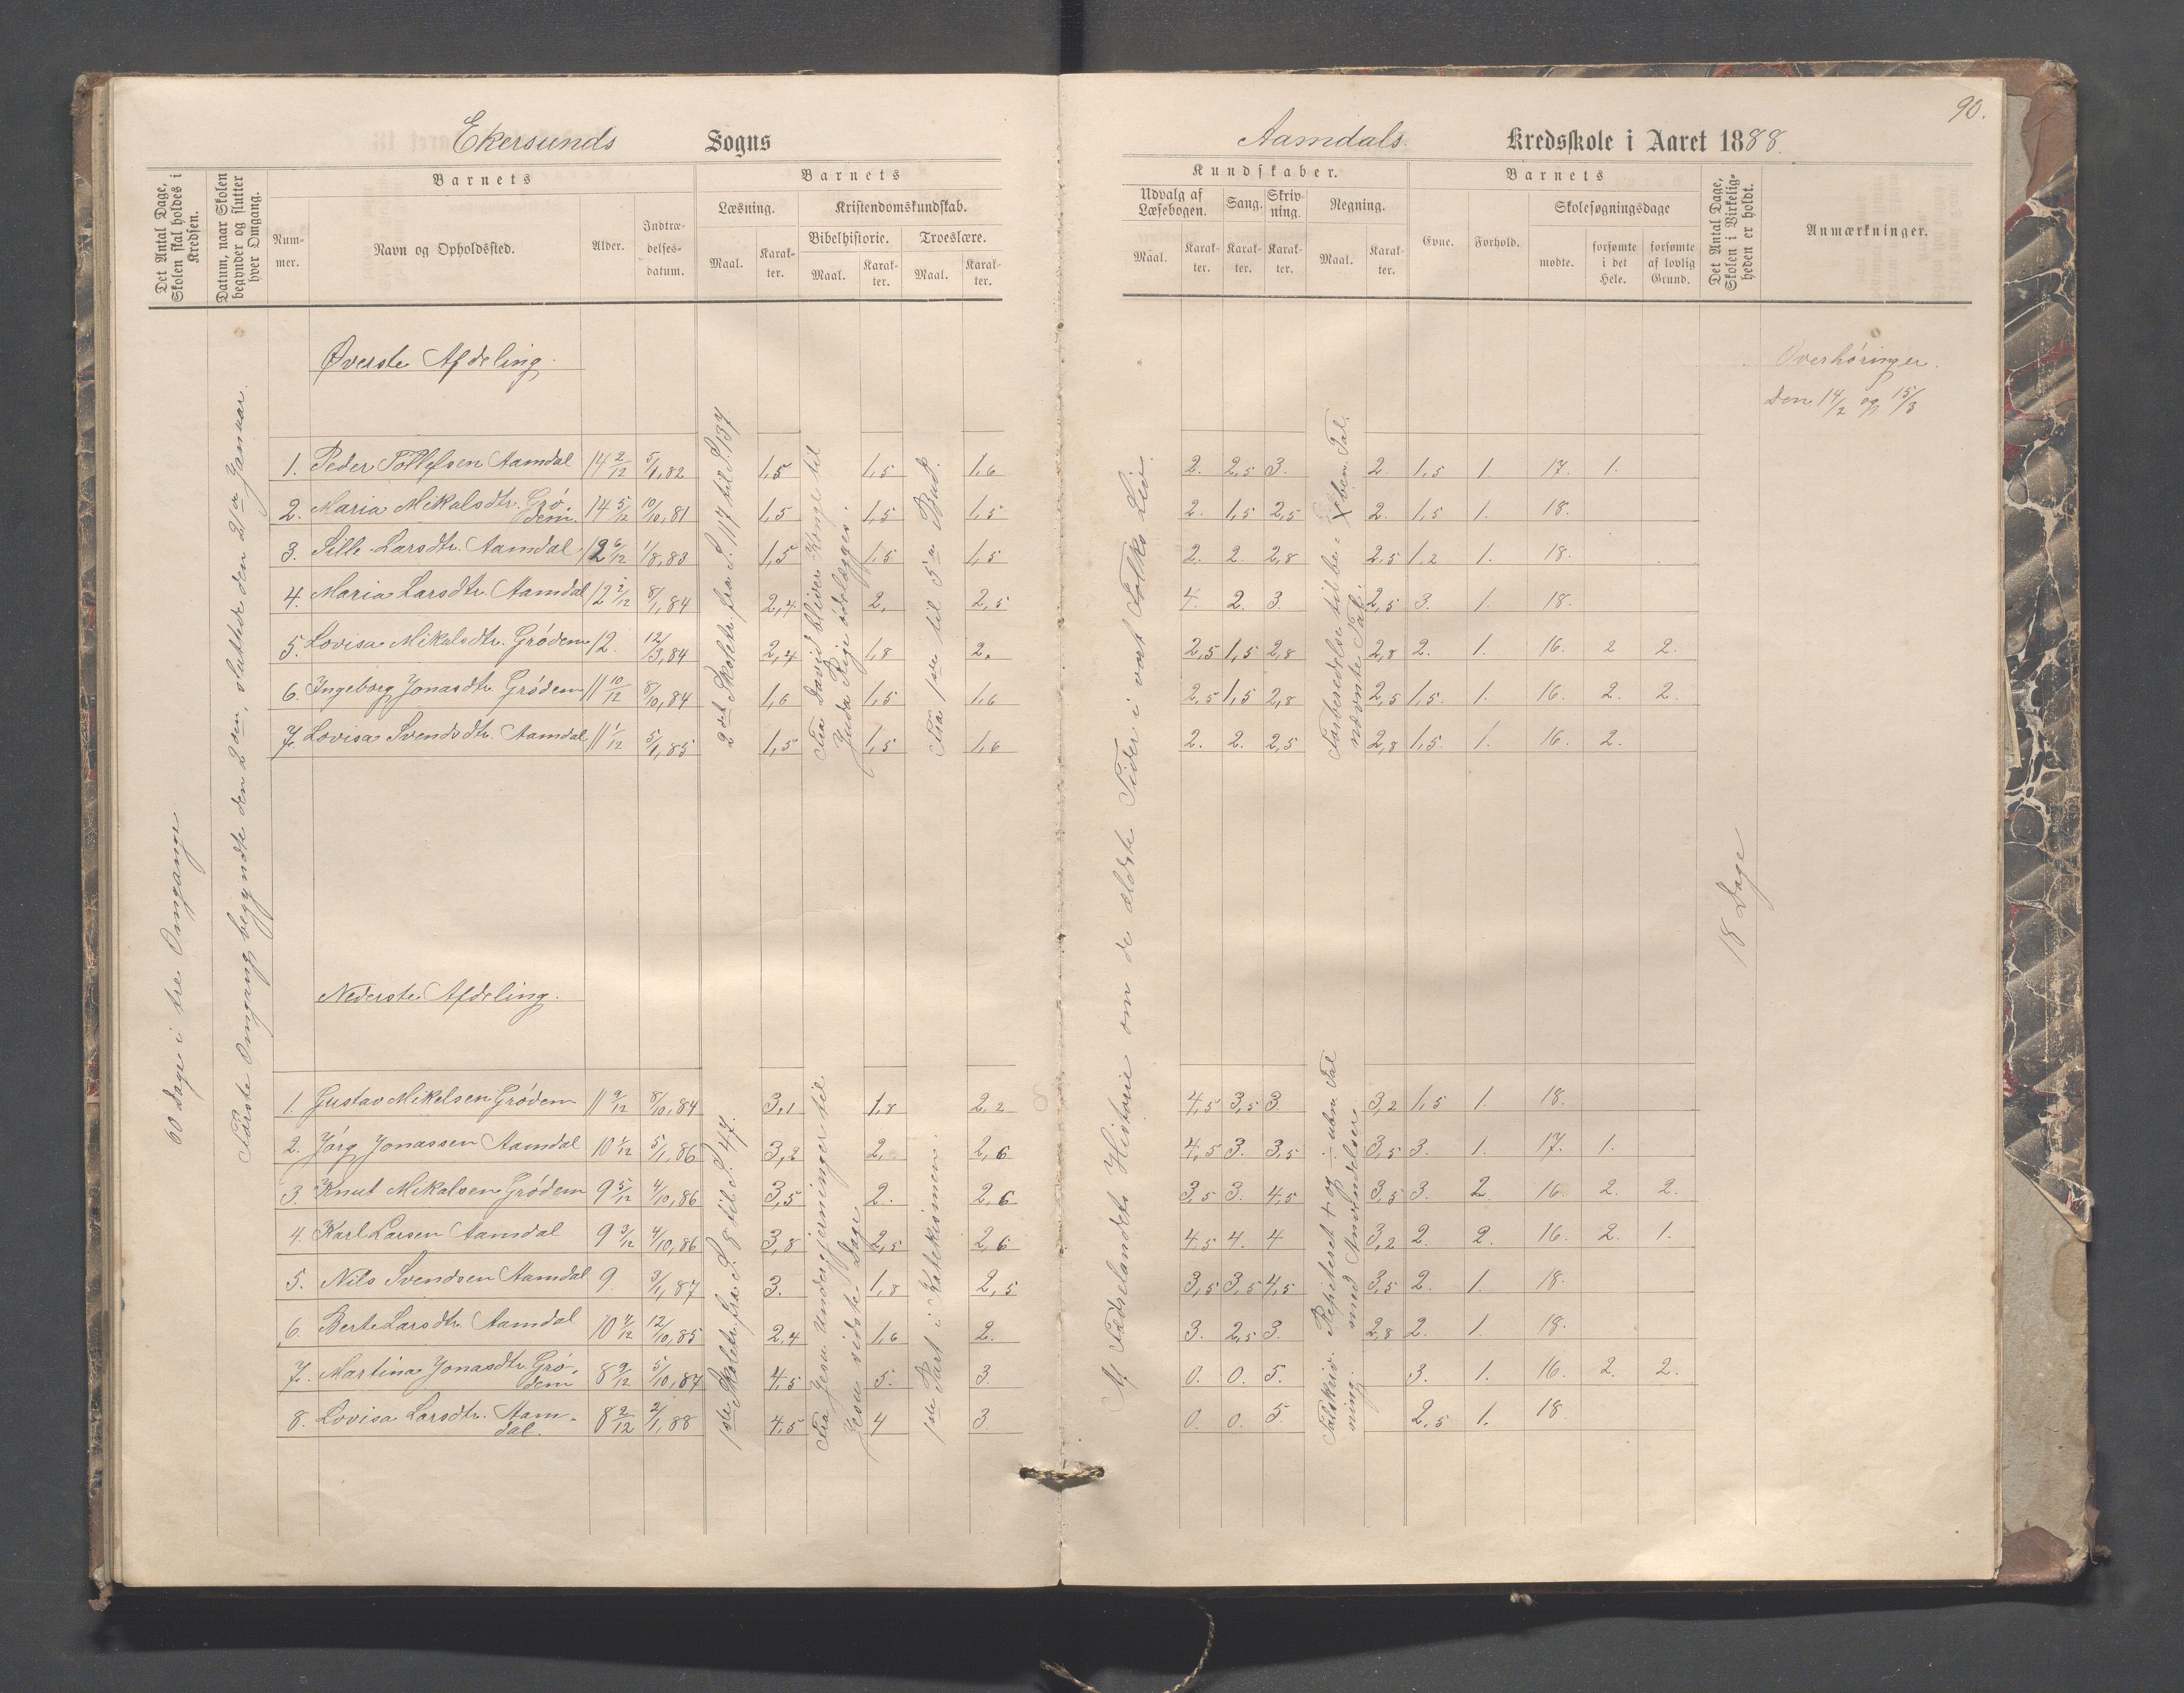 90.
Ekersunds Sogns
Aamdals Kredsskole i Aaret 1888.
Det Antal Dage, Skolen skal holdes i Kredsen.
Datum, naar Skolen begynder og slutter hver Omgang.
Barnets
Nummer.
Navn og Opholdssted.
Alder.
Indtrædelses-datum.
Barnets
Læsning.
Maal.
Karakter.
Kristendomskundskab.
Bibelhistorie.
Maal.
Karakter.
Troeslære.
Maal.
Karakter.
Kundskaber.
Udvalg af Læsebogen.
Maal.
Karakter.
Sang.
Karakter.
Skrivning.
Karakter.
Regning.
Maal.
Karakter.
Barnets
Evne.
Forhold.
Skolesøgningsdage
mødte.
forsømte i det Hele.
forsømte af lovlig Grund.
Det Antal Dage, Skolen i Virkeligheden er holdt.
Anmærkninger.
60 Dage i tre Omgange
Første Omgang begyndte den 2den, sluttede den 2den Januar.
Øverste Afdeling.
Overhøringer.
Den 14/2 og 15/3
1. Peder Tollefsen Aamdal 14 2/12 5/1,82 1,5 1,5 1,6 2. 2,5 3. 2. 1,5 1. 17. 1.
2. Maria Mikalsdtr. Grødem. 14 5/12 10/10,81 1,5 1,5 1,5 2. 1,5 2,5 2. 1,5 1. 18.
3. Sille Larsdtr. Aamdal 12 6/12 1/8,83 1,5 1,5 1,5 2. 2. 2,8 2,5 1,2 1. 18.
4. Maria Larsdtr. Aamdal 12 2/12 8/1,84 2,4 2, 2,5 4. 2. 3. 2,5 3. 1. 18.
5. Lovisa Mikalsdtr. Grødem 12. 12/3,84 2,4 1,8 2. 2,5 1,5 2,8 2,8 2. 1. 16. 2 2.
6. Ingeborg Jonasdtr. Grødem 11 10/12 8/10,84 1,6 1,5 1,6 2,5 1,5 2,8 2,5 1,5. 1. 16. 2. 2.
7. Lovisa Svendsdtr. Aamdal 11 1/12 5/1,85 1,5 1,5 1,6 2. 2. 2,5 2,8 1,5. 1. 16. 2.
2det Skoletr. fra S. 117 til S. 137
Fra David bliver Konge til Juda Rige ødelægges.
Fra 1ste til 5te Bud.
Af Fædrelandets Historie om de ældste Tider i vort Folks Liv.
Forberedelse til be-nævnte Tal.
18 Dage
Nederste Afdeling.
1. Gustav Mikelsen Grødem 11 9/12 8/10,84 3,1 1,8 2,2 4,5 3,5 3. 3,2 1,5 1. 18.
2. Jørg Jonassen Aamdal 10 4/12 5/1,86 3,2 2, 2,6 4,5 3. 3,5 3,5 3. 1. 17. 1.
3. Knut Mikalsen Grødem 9 5/12 4/10,86 3,5 2. 2,6 3,5 3. 4,5 3,5 3. 2. 16. 2. 2.
4. Karl Larsen Aamdal 9 3/12 4/10,86 3,8 2,5 2,6 4,5 4. 4 3,2 2. 2. 16. 2. 1.
5. Nils Svendsen Aamdal 9. 3/1,87 3. 1,8 2,5 3,5 3,5 4,5 3,5 2. 1. 18.
6. Berte Larsdtr. Aamdal 10 4/12 12/10,85 2,4 1,6 2. 3. 2,5 3. 2,8 2. 1. 18.
7. Martina Jonasdtr. Grødem 8 9/12 5/10,87 4,5 5. 3. 0. 0. 5. 3. 1. 16. 2. 2.
8. Lovisa Larsdtr. Aamdal. 8 2/12 2/1,88 4,5 4 3 0. 0. 5. 2,5 1. 18.
1ste Skoletr. fra S. 8 til S. 47.
Fra Jesu Undergjerninger til Jesu sidste Dage
1ste Part i Katekismen.
Talskrivning. Repeteret + og ÷ uben. Tal med Anvendelser.